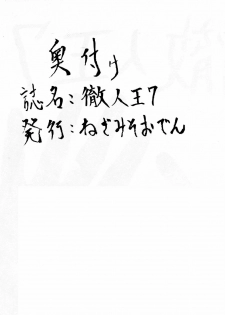 奥付け
誌名:徹人王7
発行:ねぎみそおでん